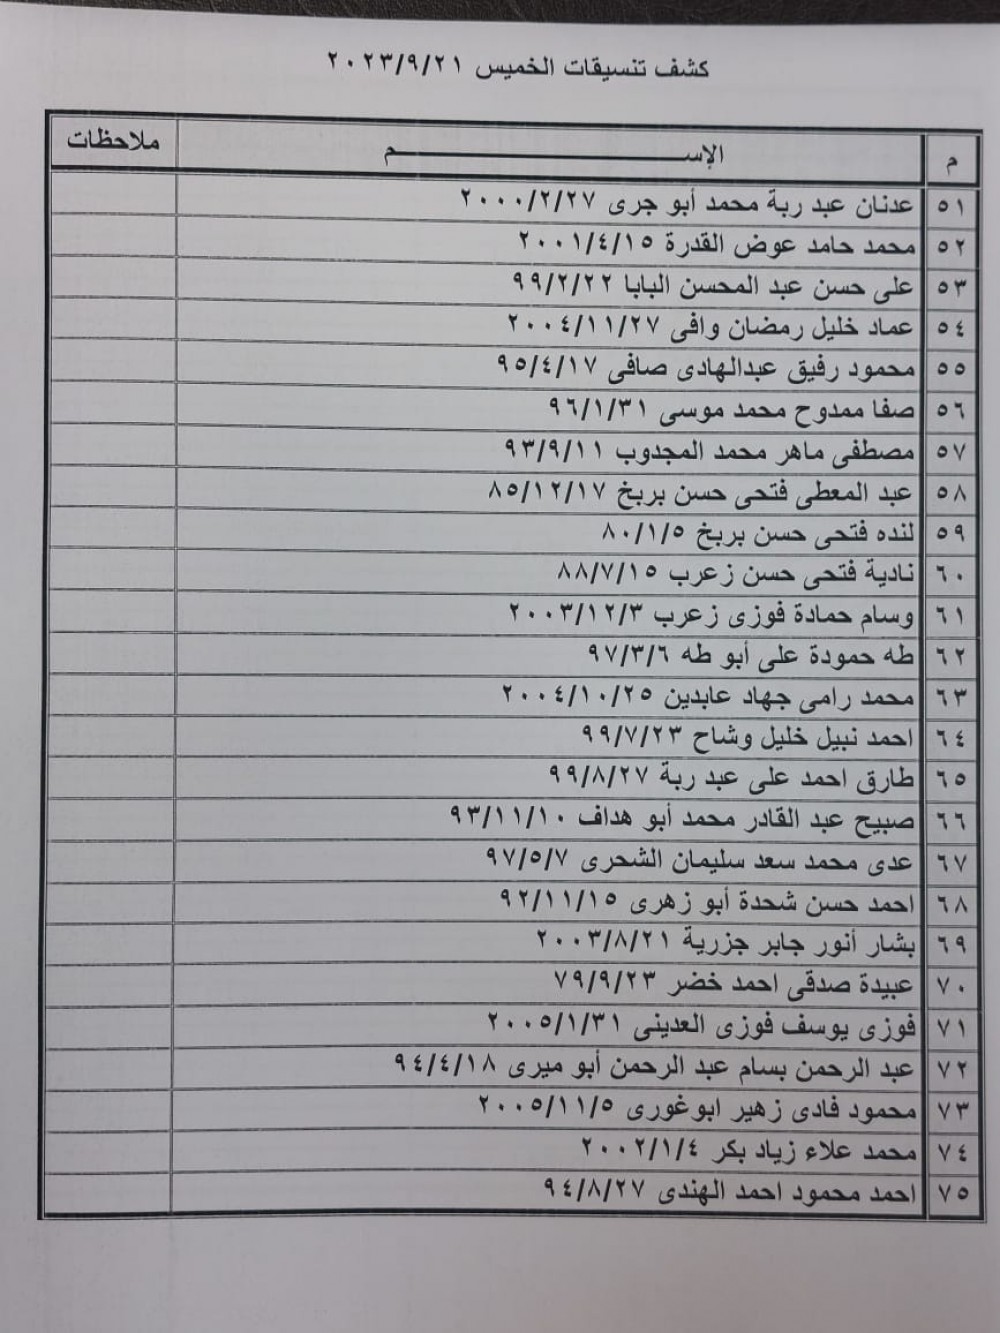 كشف تنسيقات الخميس ٢٠٢٣/٩/٢١
م الإســـــــم ملاحظات
٥١ عدنان عبد ربة محمد أبو جرى ٢٠٠٠/٢/٢٧
٥٢ محمد حامد عوض القدرة ٢٠٠١/٤/١٥
٥٣ على حسن عبد المحسن البابا ٩٩/٢/٢٢
٥٤ عماد خليل رمضان وافى ٢٠٠٤/١١/٢٧
٥٥ محمود رفيق عبدالهادى صافى ٩٥/٤/١٧
٥٦ صفا ممدوح محمد موسى ٩٦/١/٣١
٥٧ مصطفى ماهر محمد المجدوب ٩٣/٩/١١
٥٨ عبد المعطى فتحى حسن بربخ ٨٥/١٢/١٧
٥٩ لنده فتحى حسن بربخ ٨٠/١/٥
٦٠ نادية فتحى حسن زعرب ٨٨/٧/١٥
٦١ وسام حمادة فوزى زعرب ٢٠٠٣/١٢/٣
٦٢ طه حمودة على أبو طه ٩٧/٣/٦
٦٣ محمد رامى جهاد عابدين ٢٠٠٤/١٠/٢٥
٦٤ احمد نبيل خليل وشاح ٩٩/٧/٢٣
٦٥ طارق احمد على عبد ربة ٩٩/٨/٢٧
٦٦ صبيح عبد القادر محمد أبو هداف ٩٣/١١/١٠
٦٧ عدى محمد سعد سليمان الشحرى ٩٧/٥/٧
٦٨ احمد حسن شحدة أبو زهرى ٩٢/١١/١٥
٦٩ بشار أنور جابر جزرية ٢٠٠٣/٨/٢١
٧٠ عبيدة صدقى احمد خضر ٧٩/٩/٢٣
٧١ فوزى يوسف فوزى العدينى ٢٠٠٥/١/٣١
٧٢ عبد الرحمن بسام عبد الرحمن أبو ميرى ٩٤/٤/١٨
٧٣ محمود فادى زهير ابوغورى ٢٠٠٥/١١/٥
٧٤ محمد علاء زياد بكر ٢٠٠٢/١/٤
٧٥ احمد محمود احمد الهندى ٩٤/٨/٢٧